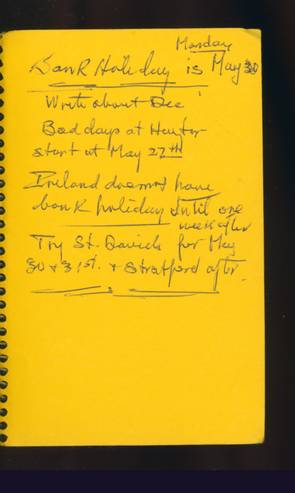 Monday
Bank Holiday is May 30
Write about Dec
Bad days at
start at May 27th
Ireland doesnt have
bank holiday until one
week after
Try St. Davids for May
30 & 31st. & Stratford after.